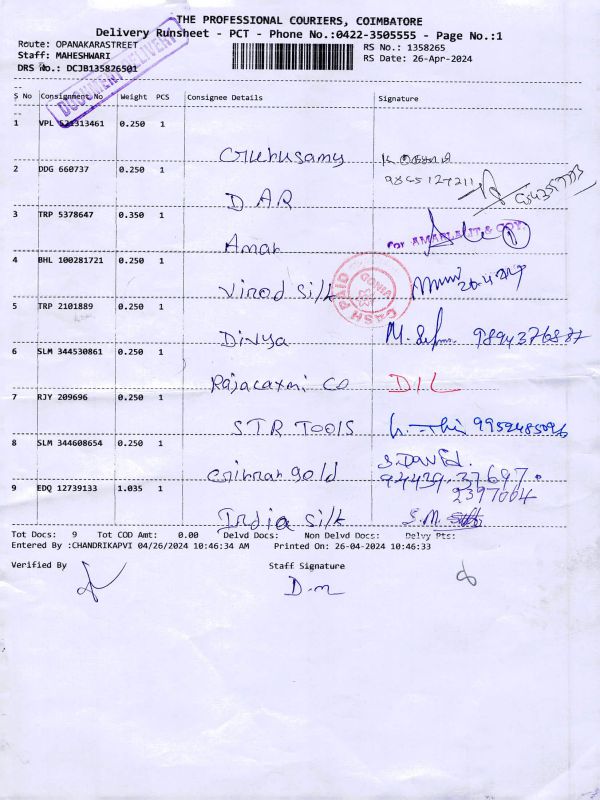 THE PROFESSIONAL COURIERS, COIMBATORE
Delivery Runsheet - PCT - Phone No.:0422-3505555 - Page No.:1
Route: OPANAKARASTREET
RS No.: 1358265
Staff: MAHESHWARI
RS Date: 26-Apr-2024
DRS No.: DCJB135826501
DOCUMENT DELIVERY
S No Consignment No Weight PCS Consignee Details Signature
1 VPL 521313461 0.250 1
Guruhusamy
9845127211
2 DDG 660737 0.250 1
DAR
3 TRP 5378647 0.350 1
Aman For AMARLALIT & COY. 1
4 BHL 100281721 0.250 1
Vinod Silk 26-4-24
CASH PAID
5 TRP 2101889 0.250 1
Divya 9894376887
6 SLM 344530861 0.250 1
Rajalaxmi Co DIL
7 RJY 209696 0.250 1
S.T.R TOOLS 9952485096
8 SLM 344608654 0.250 1
S. DAVID.
gold 94439-37697.
2397004
9 EDQ 12739133 1.035 1
India Silk S.M.
Tot Docs: 9 Tot COD Amt: 0.00 Delvd Docs: Non Delvd Docs: Delvy Pts:
Entered By :CHANDRIKAPVI 04/26/2024 10:46:34 AM Printed On: 26-04-2024 10:46:33
Verified By Staff Signature
D.m